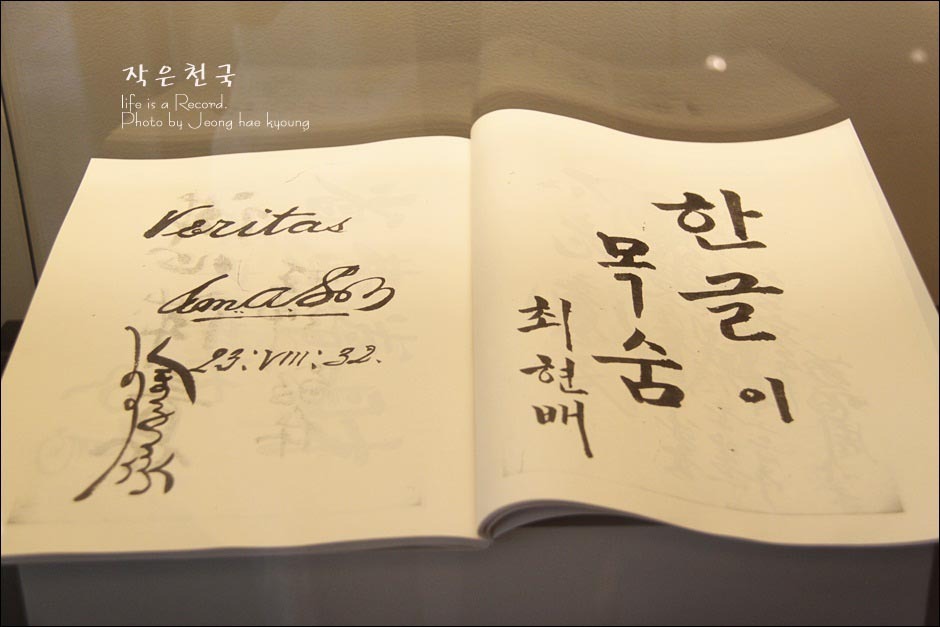 작은천국
life is a Record.
Photo by Jeong hae kyoung
Veritas
23:VIII:32.
한글이
목숨
최현배